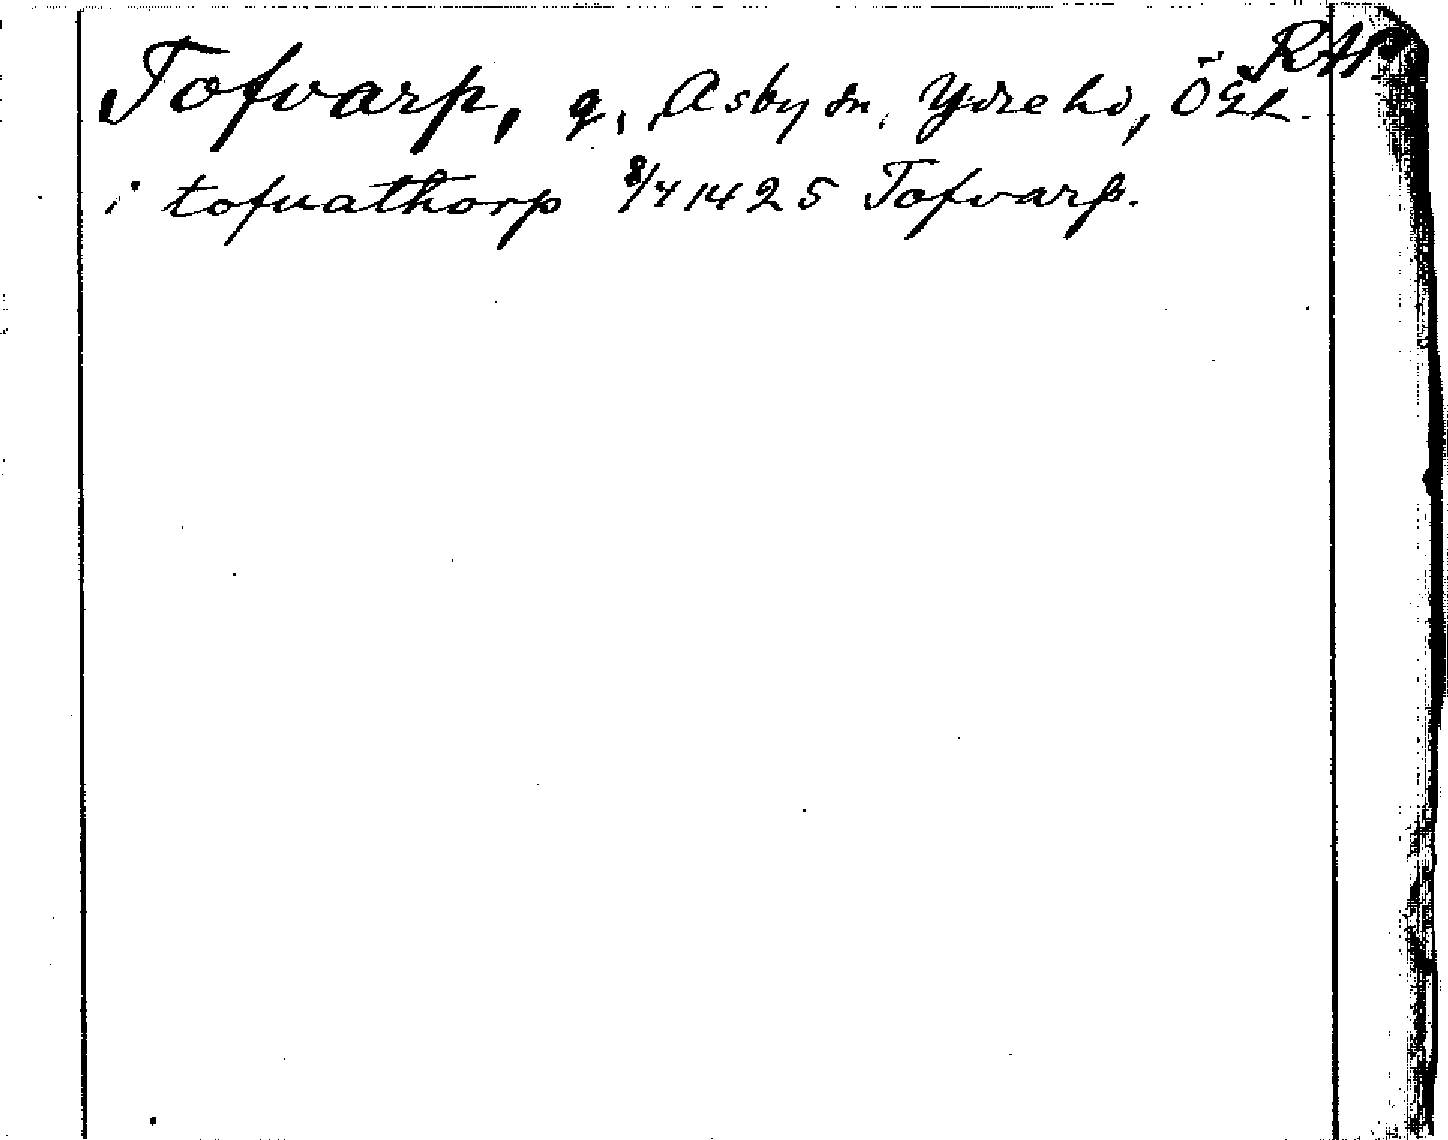 RAP
Tofvarp, g, Asby sn, Ydre hd, ÖGL.
i tofuathorp 8/4 1425 Tofvarp.